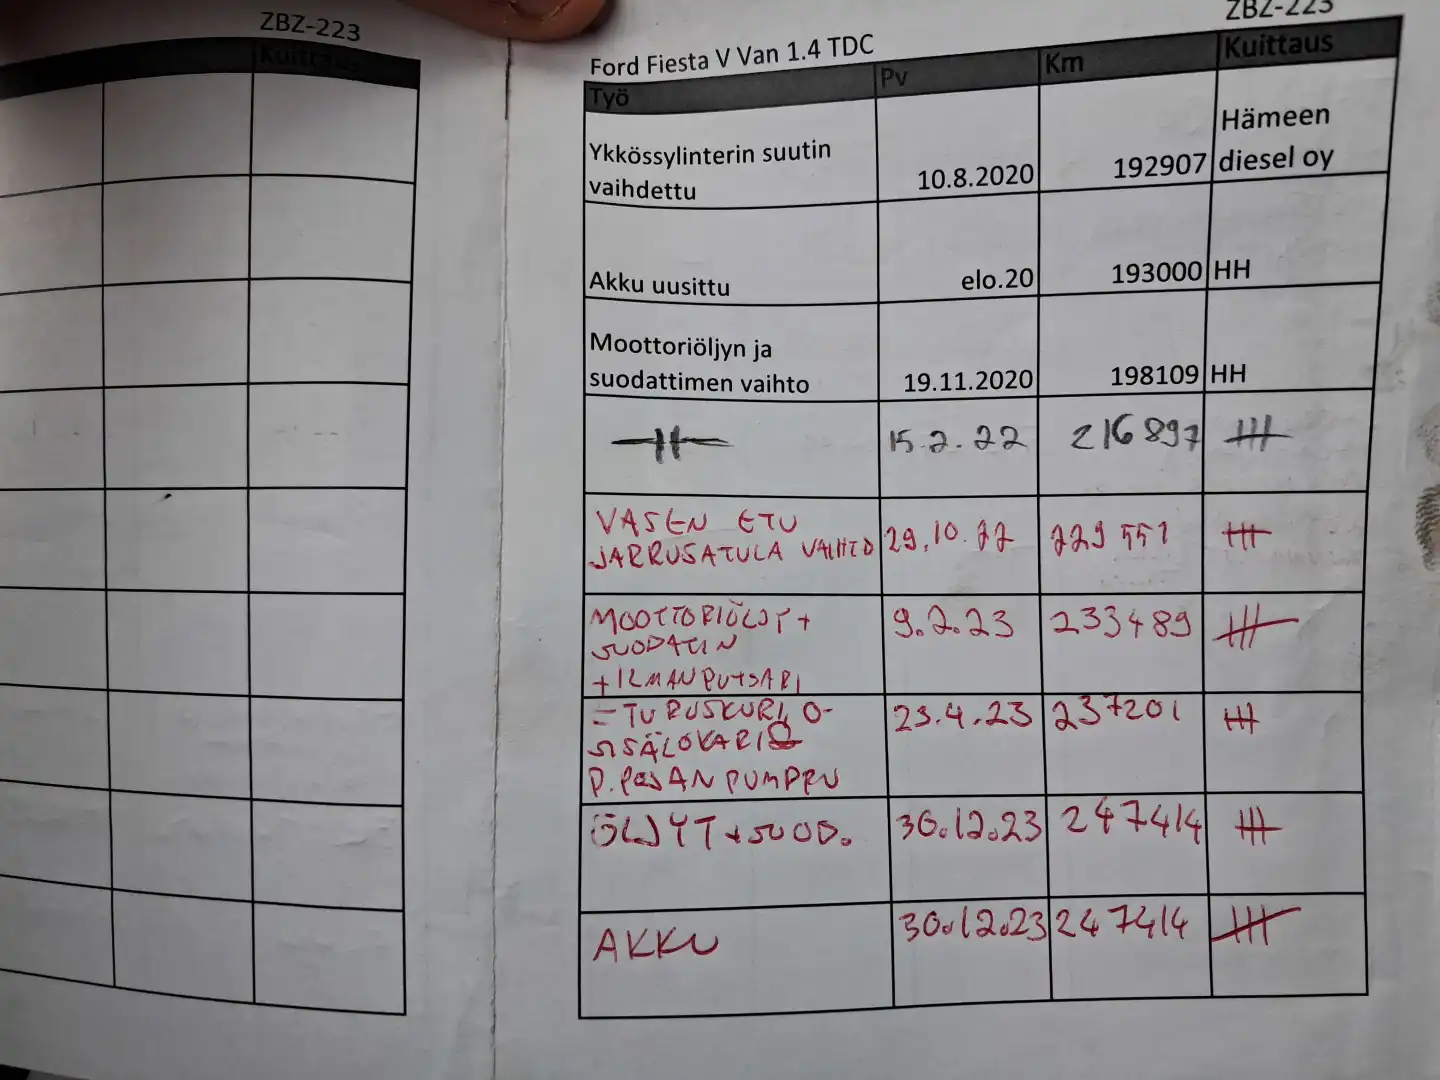 ZBZ-223
Kuittaus
ZBZ-223
Ford Fiesta V Van 1.4 TDC
Työ Pv Km Kuittaus
Ykkössylinterin suutin
vaihdettu 10.8.2020 192907 Hämeen
diesel oy
Akku uusittu elo.20 193000 HH
Moottoriöljyn ja
suodattimen vaihto 19.11.2020 198109 HH
15.2.22 216897 HH
VASEN ETU
JARRUSATULA VAIHTO 29.10.22 229 551 HH
MOOTTORIÖLJYT +
SUODATIN
+ ILMANPUTSARI 9.2.23 233489 HH
ETUPUSKURI, O-
SISÄLOKARI
P. POJAN PUMPPU 23.4.23 237201 HH
ÖLJYT + SUOD. 30.12.23 247414 HH
AKKU 30.12.23 247414 HH